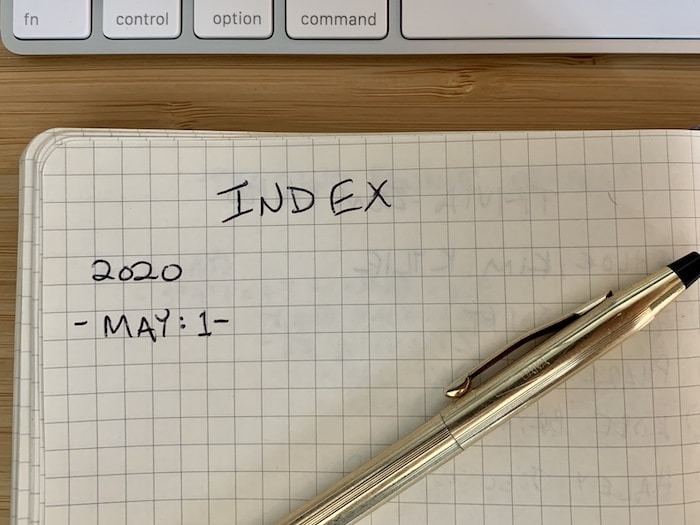 fn control option command
INDEX
2020
- MAY: 1-